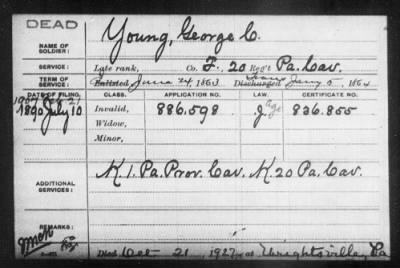 DEAD
NAME OF SOLDIER: Young, George C.
SERVICE: Late rank, Co. F, 20 Reg't Pa. Cav.
TERM OF SERVICE: Enlisted June 24, 1863 Discharged Jany 5, 1864
DATE OF FILING. CLASS. APPLICATION NO. LAW. CERTIFICATE NO.
1907 21
1890 July 10 Invalid, 886.598 J age 836.855
Widow,
Minor,
ADDITIONAL SERVICES: K. 1. Pa. Prov. Cav. K. 20 Pa. Cav.
REMARKS:
Died Oct 21, 1927, at Wrightsville, Pa